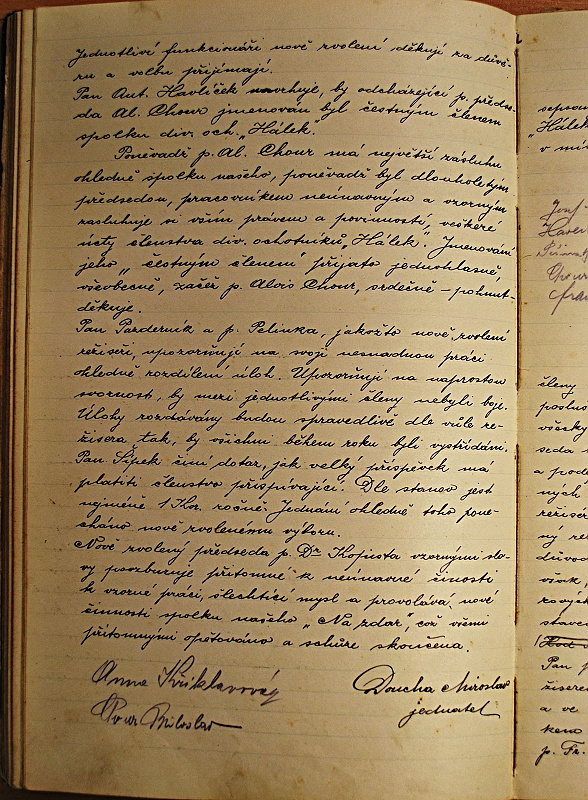 Jednotliví funkcionáři nově zvolení děkují za důvě-
ru a volbu přijímají.
Pan Ant. Havlíček navrhuje, by odcházející p. předse-
da Al. Chour jmenován byl čestným členem
spolku div. och. „Hálek".
Poněvadž p. Al. Chour má největší zásluhu
ohledně spolku našeho, poněvadž byl dlouholetým
předsedou, pracovníkem neúnavným a vzorným
zasluhuje si vším právem a povinností, veškeré
úcty členstva div. ochotníků „Hálek". Jmenování
jeho „čestným členem přijato jednohlasně,
všeobecně, začež p. Alois Chour, srdečně – pohnut-
děkuje.
Pan Pazderník a p. Pelinka, jakožto nově zvolení
režiséři, upozorňují na svoji nesnadnou práci
ohledně rozdílení úloh. Upozorňují na naprostou
svornost, by mezi jednotlivými členy nebyli boje.
Úlohy rozdávány budou spravedlivě dle vůle re-
žisera tak, by všichni během roku byli vystřídáni.
Pan Šípek činí dotaz, jak velký příspěvek má
platiti členstvo přispívající. Dle stanov jest
nejméně 1 Kor. ročně. Jednání ohledně toho pone-
cháno nově zvolenému výboru.
Nově zvolený předseda p. Dr Kopista vzornými slo-
vy povzbuzuje přítomné k neúnavné činnosti
k vzorné práci, šlechtící mysl a provolává nové
činnosti spolku našeho „Na zdar", což všemi
přítomnými opětováno a schůze skončena.
Anna Křiklavová
Doucha Miroslav
jednatel
Chour Miloslav
„Hálek
v mí
členy
posluš
všecky
seda
a pod
ných
režisér
ný re
důvod
však,
stavení
Pan p
žisere
a ve
kem
p. Fr.